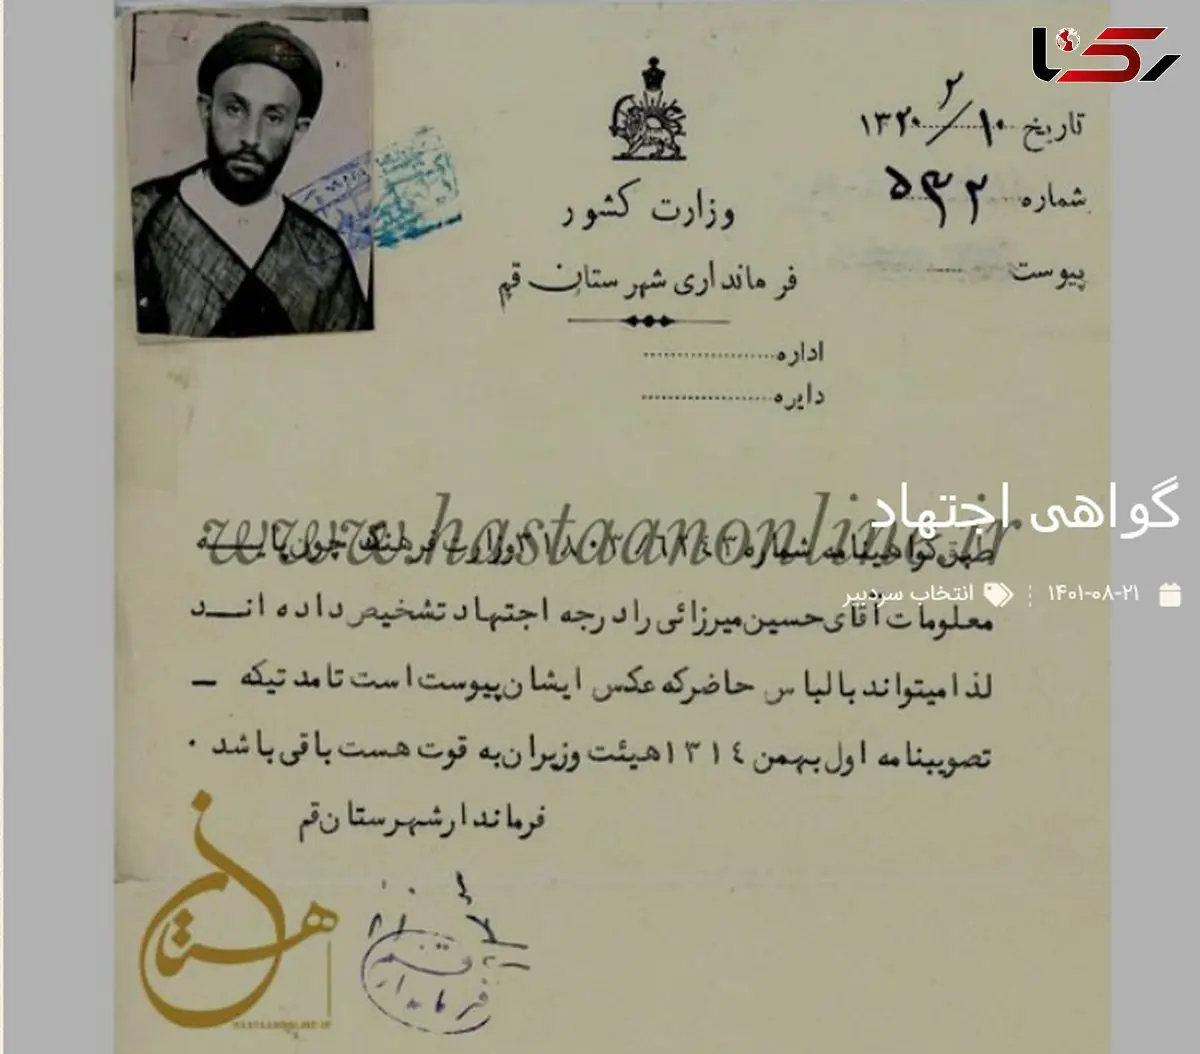 رکنا
تاریخ ۱۰/۳ ۱۳۲۰
شماره ۵۳۲
پیوست
وزارت کشور
فرمانداری شهرستان قم
اداره
دایره
گواهی اجتهاد
۱۴۰۱-۰۸-۲۱
انتخاب سردبیر
www.hastaanonline.ir
طبق گواهینامه شماره وزارت فرهنگ چون پایـــه
معلومات آقای حسین میرزائی را درجه اجتهاد تشخیص داده انــد
لذا میتواند با لباس حاضر که عکس ایشان پیوست است تا مدتیکه ـ
تصویبنامه اول بهمن ۱۳۱٤ هیئت وزیران به قوت هست باقی باشد ۰
فرماندار شهرستان قم
هستان
فرماندار قم